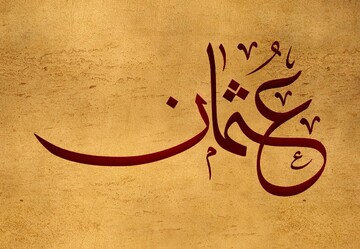 عُثمان